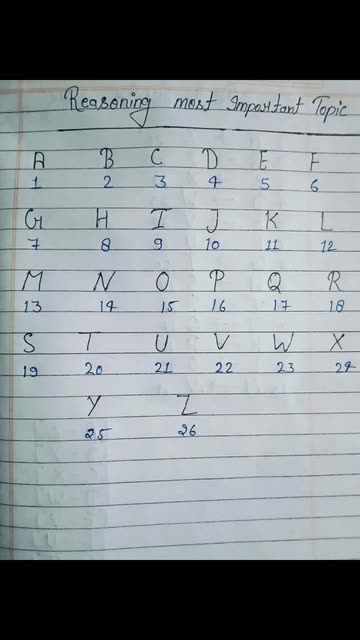 Reasoning most Important Topic
A B C D E F
1 2 3 4 5 6
G H I J K L
7 8 9 10 11 12
M N O P Q R
13 14 15 16 17 18
S T U V W X
19 20 21 22 23 24
Y Z
25 26